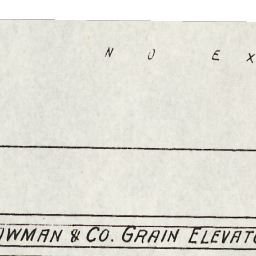 NO EX
OWMAN & CO. GRAIN ELEVATO